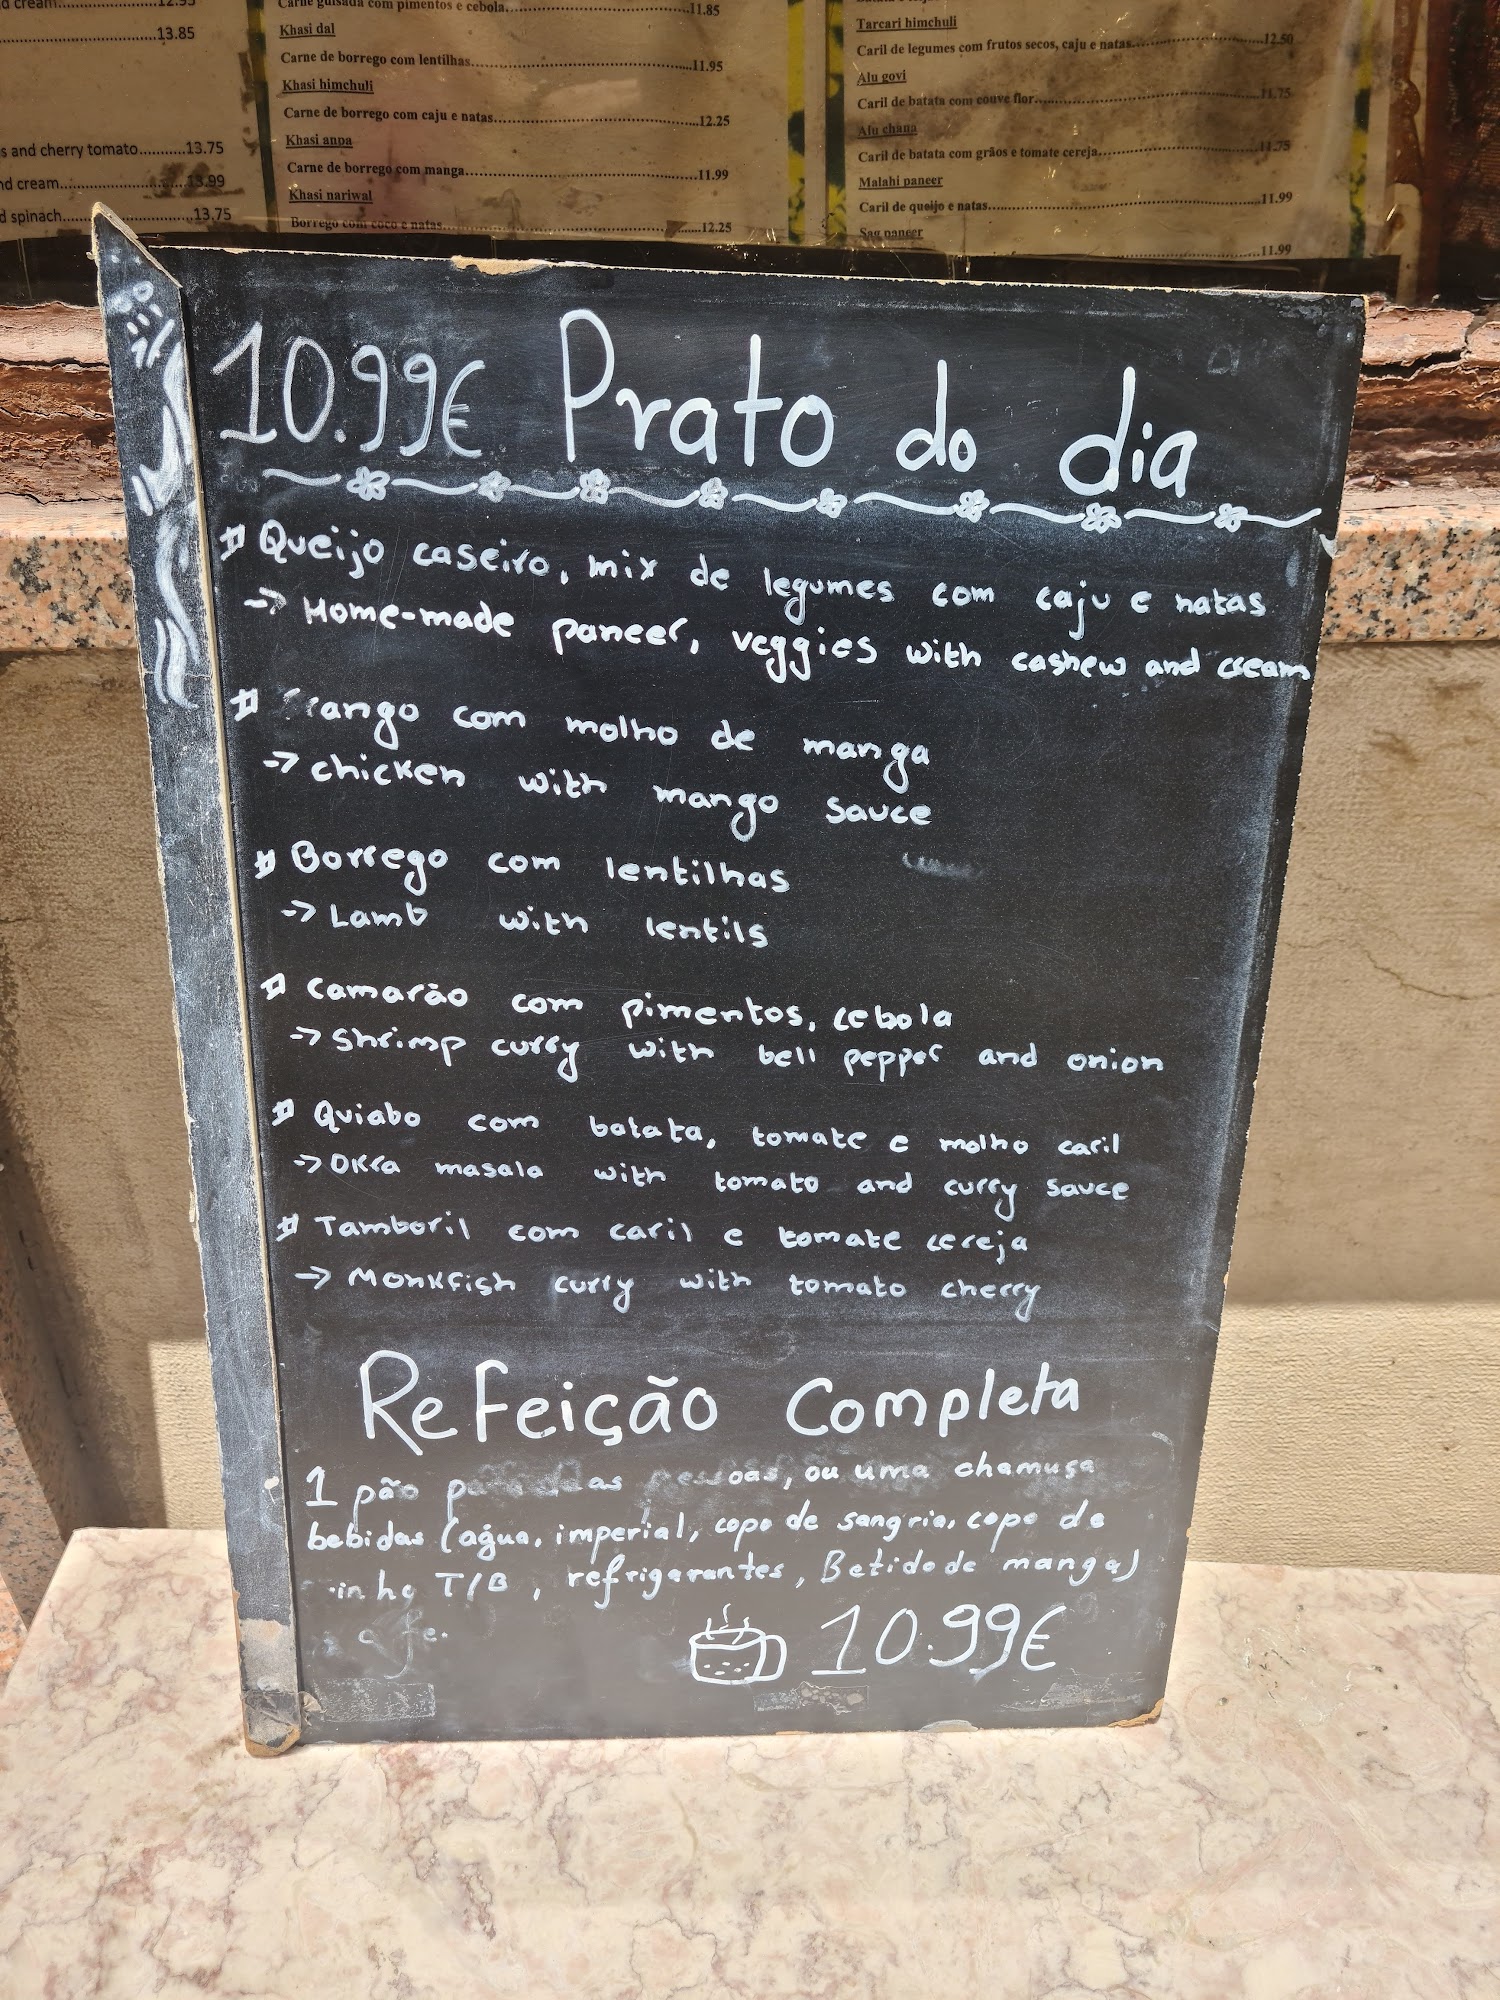 d cream...............12.95
...............13.85
s and cherry tomato...........13.75
nd cream...............13.99
d spinach...............13.75
Carne guisada com pimentos e cebola...............11.85
Khasi dal
Carne de borrego com lentilhas...............11.95
Khasi himchuli
Carne de borrego com caju e natas...............12.25
Khasi anpa
Carne de borrego com manga...............11.99
Khasi nariwal
Borrego com coco e natas...............12.25
Tarcari himchuli
Caril de legumes com frutos secos, caju e natas...............12.50
Alu govi
Caril de batata com couve flor...............11.75
Alu chana
Caril de batata com grãos e tomate cereja...............11.75
Malahi paneer
Caril de queijo e natas...............11.99
Sag paneer
...............11.99
10.99€ Prato do dia
# Queijo caseiro, mix de legumes com caju e natas
-> Home-made paneer, veggies with cashew and cream
# Frango com molho de manga
-> chicken with mango sauce
# Borrego com lentilhas
-> Lamb with lentils
# Camarão com pimentos, cebola
-> shrimp curry with bell pepper and onion
# Quiabo com batata, tomate e molho caril
-> Okra masala with tomato and curry sauce
# Tamboril com caril e tomate cereja
-> Monkfish curry with tomato cherry
Refeição Completa
1 pão pessoas, ou uma chamusa
bebidas (agua, imperial, copo de sangria, copo de
T/B, refrigarantes, Betido de manga)
10.99€